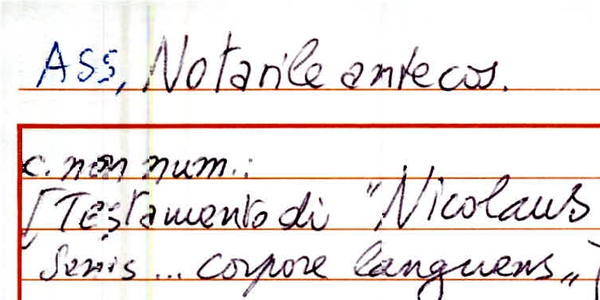 ASS, Notarile antecos.
c. non num.:
[Testamento di "Nicolaus
Senis... corpore languens"